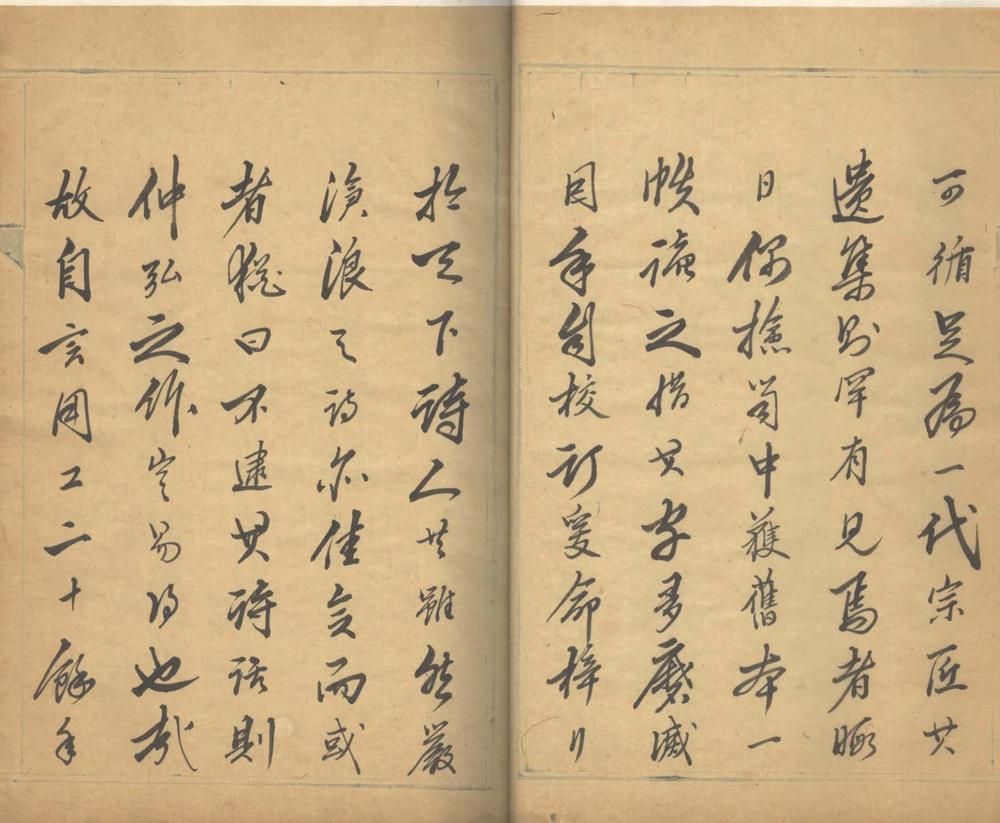 可循足為一代宗匠其
遺集則罕有見焉者暇
日偶撿笥中獲舊本一
帙讀之惜其字多磨滅
因手自校訂爰命梓行
於天下詩人共雖然嚴
滄浪之詩亦佳矣而或
者猶曰不逮其詩話則
仲弘之作豈易得也哉
故自言用工二十餘年